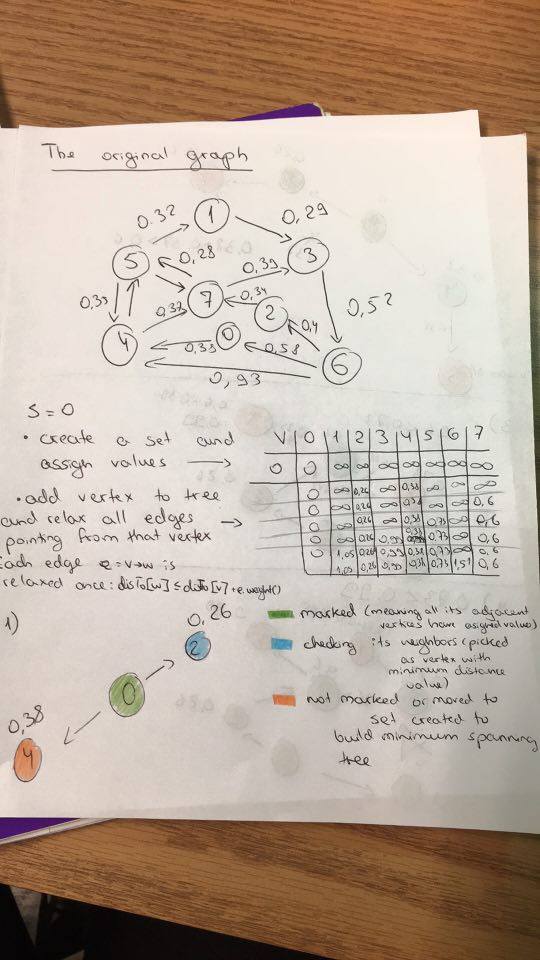 The original graph
0.32 1 0,29
5 0,28 3
0,39
0,33 7 0,34 0,52
0,37 2
4 0 0,4
0,38 0,58 6
0,93
S = 0
• create a set and
assign values →
• add vertex to tree
and relax all edges →
pointing from that vertex
Each edge e = v→w is
relaxed once: disTo[w] ≤ disTo[v] + e.weight()
V 0 1 2 3 4 5 6 7
0 0 ∞ ∞ ∞ ∞ ∞ ∞ ∞
0 ∞ 0,26 ∞ 0,38 ∞ ∞ ∞
0 ∞ 0,26 ∞ 0,38 ∞ ∞ 0,6
0 ∞ 0,26 ∞ 0,38 0,73 ∞ 0,6
0 ∞ 0,26 0,99 0,38 0,73 ∞ 0,6
0 1,05 0,26 0,99 0,38 0,73 ∞ 0,6
1,05 0,26 0,99 0,38 0,73 1,51 0,6
1)
0,26
2
0
0,38
4
marked (meaning all its adjacent
vertices have asigned value)
checking its neighbors (picked
as vertex with
minimum distance
value)
not marked or moved to
set created to
build minimum spanning
tree